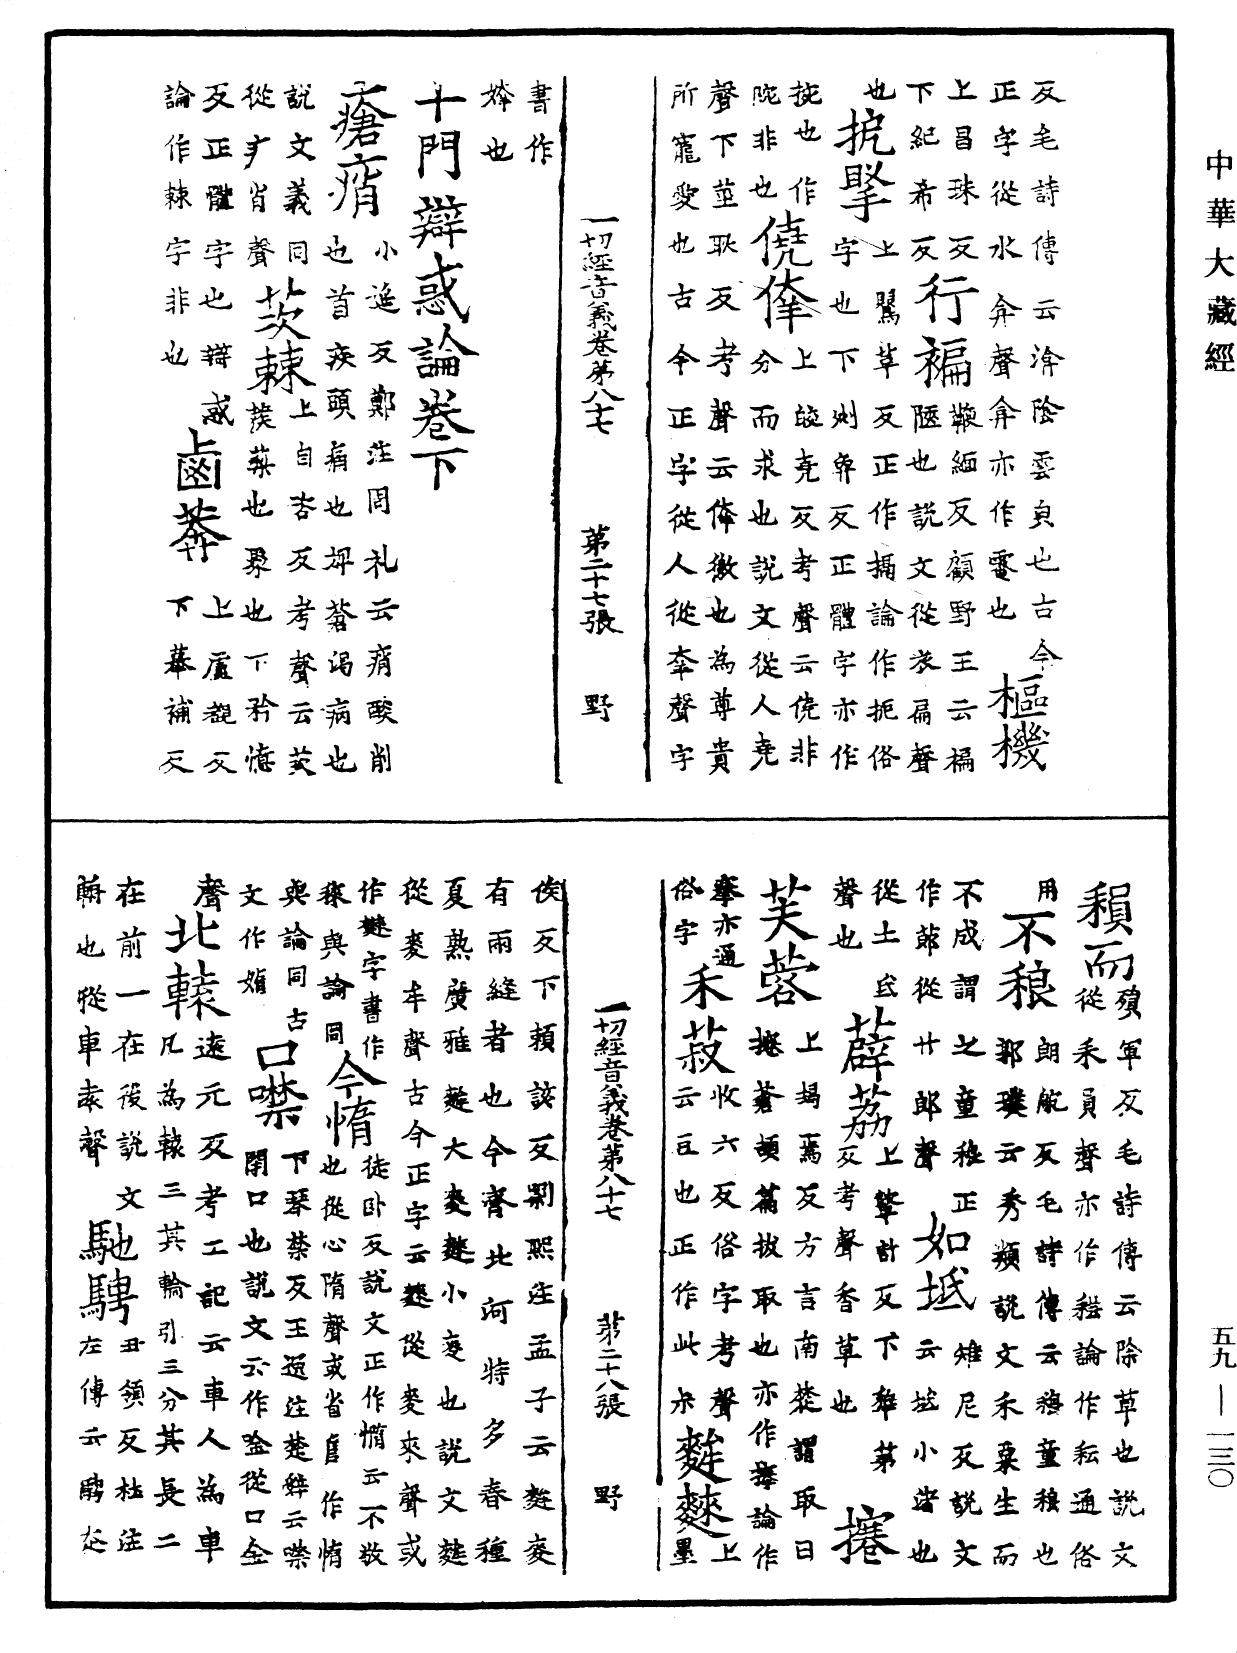 中華大藏經
反毛詩傳云渰陰雲皃也古今
正字從水弇聲弇亦作霮也樞機
上昌珠反
下紀希反行褊鞭緬反顧野王云褊
陿也說文從衣扁聲
也扼擥上鷖革反正作搹論作扼俗
字也下㓨奐反正體字亦作
捥也作
陀非也僥倖上皎堯反考聲云僥非
分而求也說文從人堯
聲下莖耿反考聲云倖徼也為尊貴
所寵愛也古今正字從人從㚔聲字
一切經音義卷第八十七 第二十七張 野
書作
婞也
十門辯惑論卷下
瘡痟小遙反鄭注周礼云痟酸削
也首疾頭痛也埤蒼渴病也
說文義同
從疒肖聲茨棘上自咨反考聲云茨
蒺䔧也聚也下矜憶
反正體字也辯惑
論作棘字非也鹵莽上盧覩反
下莽補反
賴而殞軍反毛詩傳云除草也說文
從耒員聲亦作耘論作耘通俗
用不稂朗䑓反毛詩傳云稂童稂也
郭璞云秀類說文禾粟生而
不成謂之童稂正
作蓈從艹郎聲如坻雉尼反說文
云坻小渚也
從土氐
聲也薜荔上鞞計反下犂第
反考聲香草也搴
上朅焉反方言南楚謂取曰
搴蒼頡篇拔取也亦作攓論作
搴亦通
俗字芙蓉
禾菽收六反俗字考聲上
云豆也正作此尗麰麳墨
一切經音義卷第八十七 第二十八張 野
侯反下賴該反劉熙注孟子云麰麥
有兩縫者也今齊北河特多春種
夏熟廣雅麰大麥麳小麥也說文麰
從麥牟聲古今正字云麳從麥來聲或
作𪍿字書作
秾與論同今惰徒卧反說文正作憜云不敬
也從心隋聲或省𨸏作惰
與論同古
文作媠口噤下琴禁反王逸注楚辭云噤
閉口也說文云作唫從口金
聲北轅遠元反考工記云車人為車
凡為轅三其輪引三分其長二
在前一在後說文
輈也從車袁聲馳騁丑領反杜注
左傳云騁
五九—一三〇